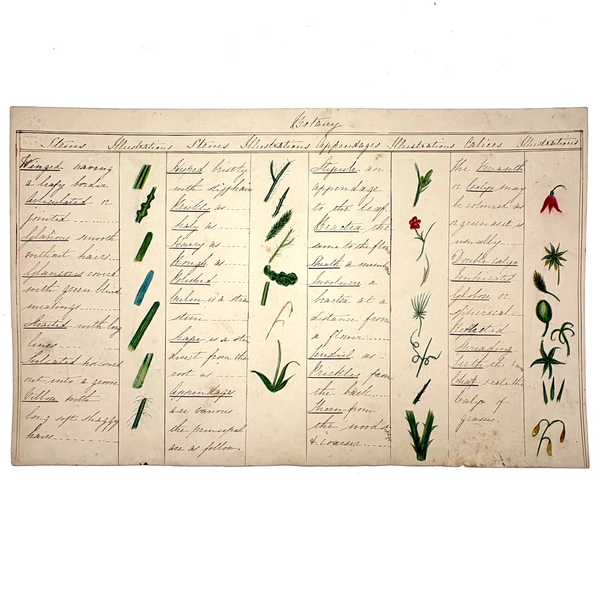 Botany
Stems Illustrations Stems Illustrations Appendages Illustrations Calices Illustrations
Winged having
a leafy border
Articulated or
jointed
smooth
without hairs
Glaucous
with green
Striated with long
lines
out into a groove
Villous with
long soft shaggy
hairs
bristly
with
Prickly as
Scaly as
Hairy as
Rough as
Polished
Culm is a
stem
Scape is a
direct from the
root as
Appendages
are various
the principal
are as follow.
Stipule an
appendage
to the leaf
Bractea the
same to the
Sheath a
Involucre a
bractea at a
distance from
a flower
Tendril as
Prickles from
the back
Thorn from
the wood
& coarser
The Perianth
or Calyx may
be coloured as
or green as it is
usually
Double calyx
Imbricated
Globose or
spherical
Reflected
Spreading
calyx of
grasses.